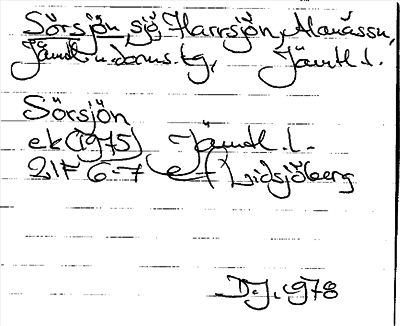 Sörsjön, sjö Harrsjön, Alanässn,
Jämtl. n. doms. tg, Jämtl. l.
Sörsjön
ek (1975) Jämtl. l.
21F 6-7 ef Lidsjöberg
D.J. 1978